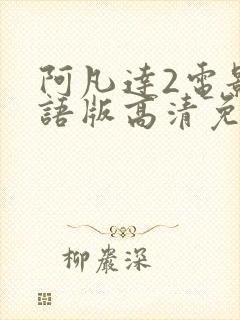 阿凡達2電影
語版高清免
柳巖深